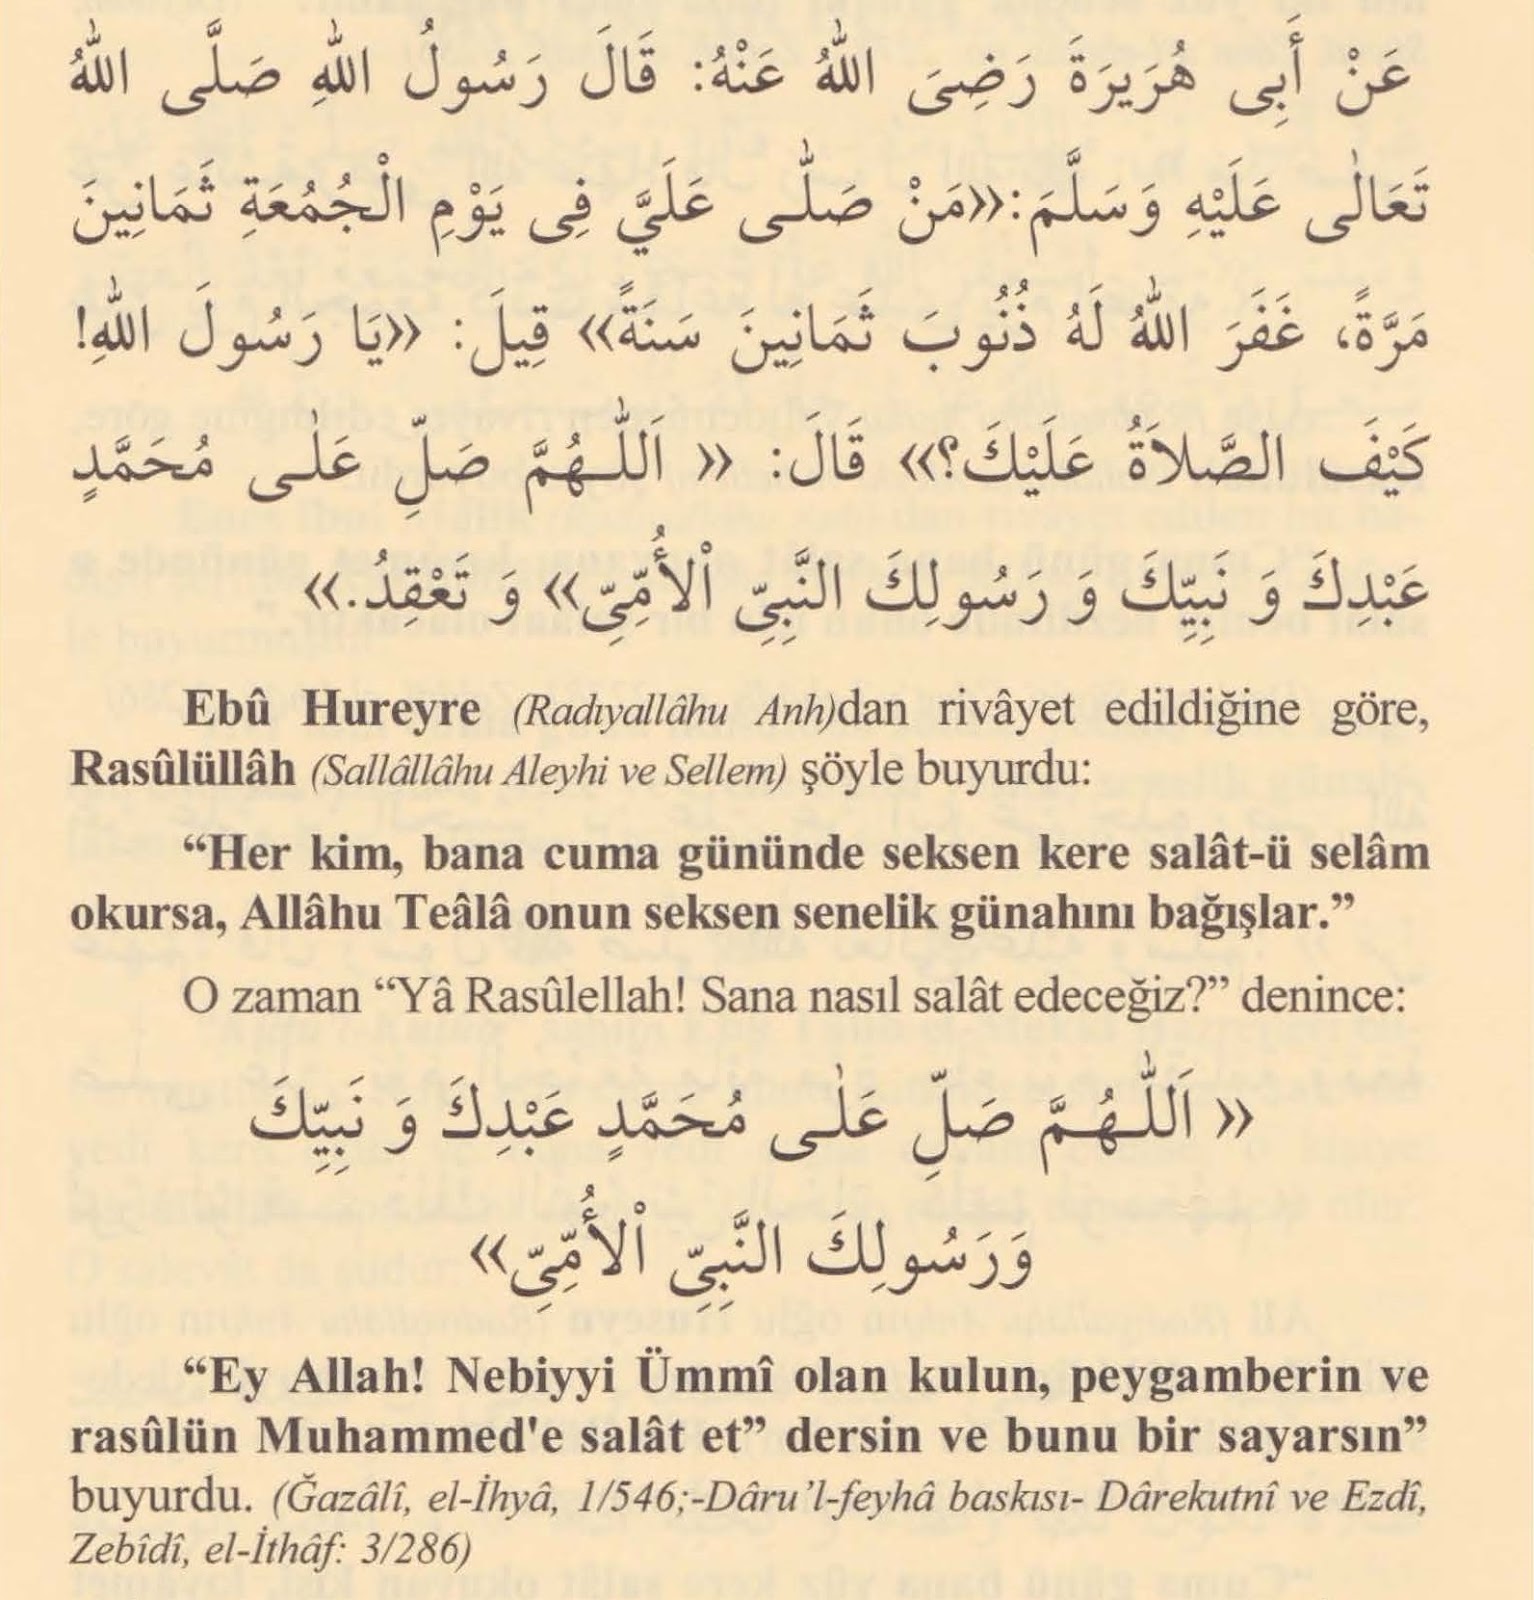 عَنْ أَبِى هُرَيرَةَ رَضِىَ اللّٰهُ عَنْهُ: قَالَ رَسُولُ اللّٰهِ صَلَّى اللّٰهُ
تَعَالٰى عَلَيْهِ وَسَلَّمَ:«مَنْ صَلّٰى عَلَيَّ فِى يَوْمِ الْجُمُعَةِ ثَمَانِينَ
مَرَّةً، غَفَرَ اللّٰهُ لَهُ ذُنُوبَ ثَمَانِينَ سَنَةً» قِيلَ: «يَا رَسُولَ اللّٰهِ!
كَيْفَ الصَّلاَةُ عَلَيْكَ؟» قَالَ: « اَللّٰهُمَّ صَلِّ عَلٰى مُحَمَّدٍ
عَبْدِكَ وَ نَبِيِّكَ وَ رَسُولِكَ النَّبِىِّ اْلأُمِّىِّ» وَ تَعْقِدُ.»
Ebû Hureyre (Radıyallâhu Anh)dan rivâyet edildiğine göre,
Rasûlüllâh (Sallâllâhu Aleyhi ve Sellem) şöyle buyurdu:
“Her kim, bana cuma gününde seksen kere salât-ü selâm
okursa, Allâhu Teâlâ onun seksen senelik günahını bağışlar.”
O zaman “Yâ Rasûlellah! Sana nasıl salât edeceğiz?” denince:
« اَللّٰهُمَّ صَلِّ عَلٰى مُحَمَّدٍ عَبْدِكَ وَ نَبِيِّكَ
وَرَسُولِكَ النَّبِىِّ اْلأُمِّىِّ»
“Ey Allah! Nebiyyi Ümmî olan kulun, peygamberin ve
rasûlün Muhammed'e salât et” dersin ve bunu bir sayarsın”
buyurdu. (Ğazâlî, el-İhyâ, 1/546;-Dâru’l-feyhâ baskısı- Dârekutnî ve Ezdî,
Zebîdî, el-İthâf: 3/286)